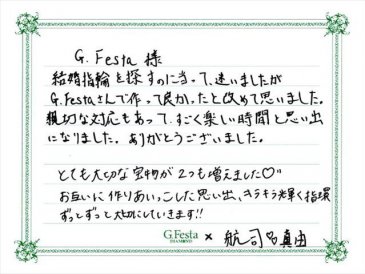 G.Festa 様
結婚指輪を探すのに当って、迷いましたが
G.Festaさんで作って良かったと改めて思いました。
親切な対応もあって、すごく楽しい時間と思い出
になりました。ありがとうございました。
とても大切な宝物が2つも増えました♡"
お互いに作りあいっこした思い出、キラキラ輝く指環
ずっとずっと大切にしていきます!!
G.Festa × 航司 真由
DIAMOND